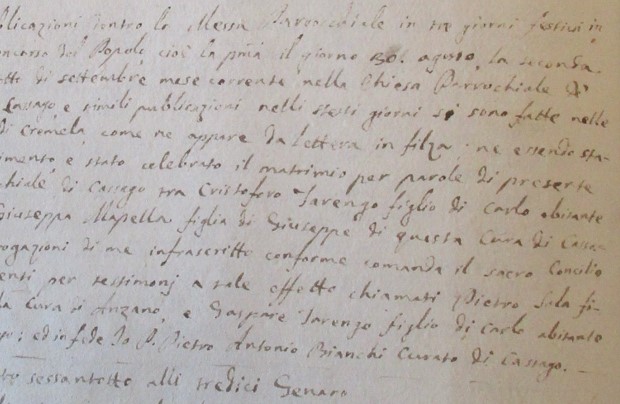 blicazioni dentro la Messa Parrochiale in tre giorni festivi in
oncorso del Popolo cioè la pma il giorno 30. agosto, la seconda
otto di settembre mese corrente nella Chiesa Parrochiale di
Cassago, e simili publicazioni nelli stessi giorni si sono fatte nelle
di Cremela, come ne appare da lettera in filza. ne essendo sta-
imento, è stato celebrato il matrimio per parole di presente
chiale di Cassago tra Cristoforo Jarengo figlio di Carlo abitante
Giuseppa Mapella figlia di Giuseppe di questa Cura di Cassa-
rogazioni di me infrascritto conforme comanda il sacro Concilio
enti per testimonj a tale effetto chiamati Pietro Sala fi-
la Cura di Anzano, e Gaspare Jarengo figlio di Carlo abitante
go; ed in fede Io P. Pietro Antonio Bianchi Curato di Cassago. —
to sessantotto alli tredici Genaro